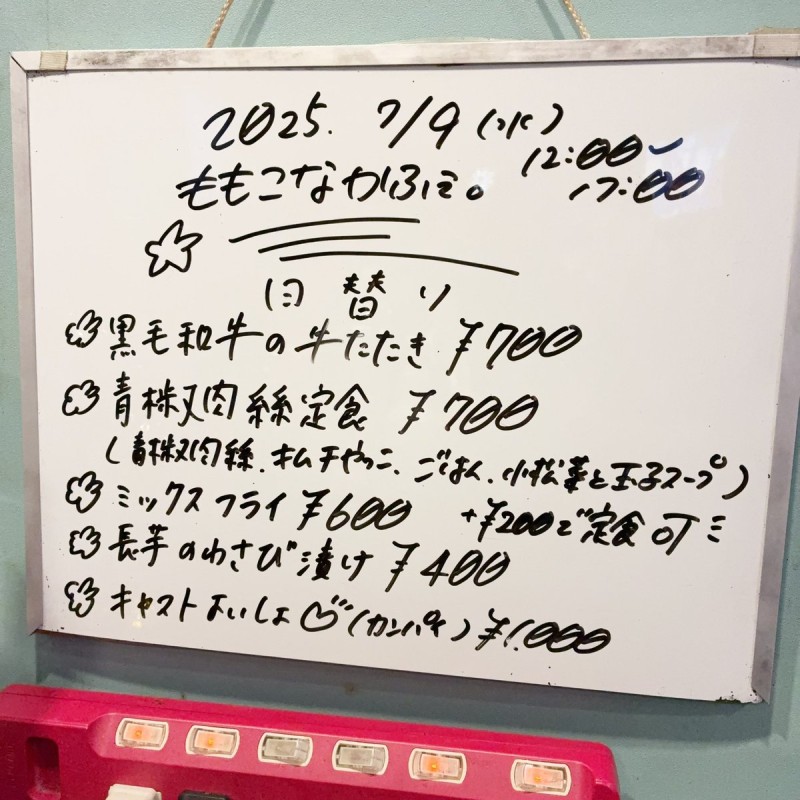 2025. 7/9 (水)
12:00〜
17:00
ももこなかふぇ。
日替り
黒毛和牛の牛たたき ¥700
青椒肉絲定食 ¥700
(青椒肉絲、キムチやっこ、ごはん、小松菜と玉子スープ)
ミックスフライ ¥600 +¥200で定食可ミ
長芋のわさび漬け ¥400
キャストよいしょ♡(カンパイ) ¥1,000